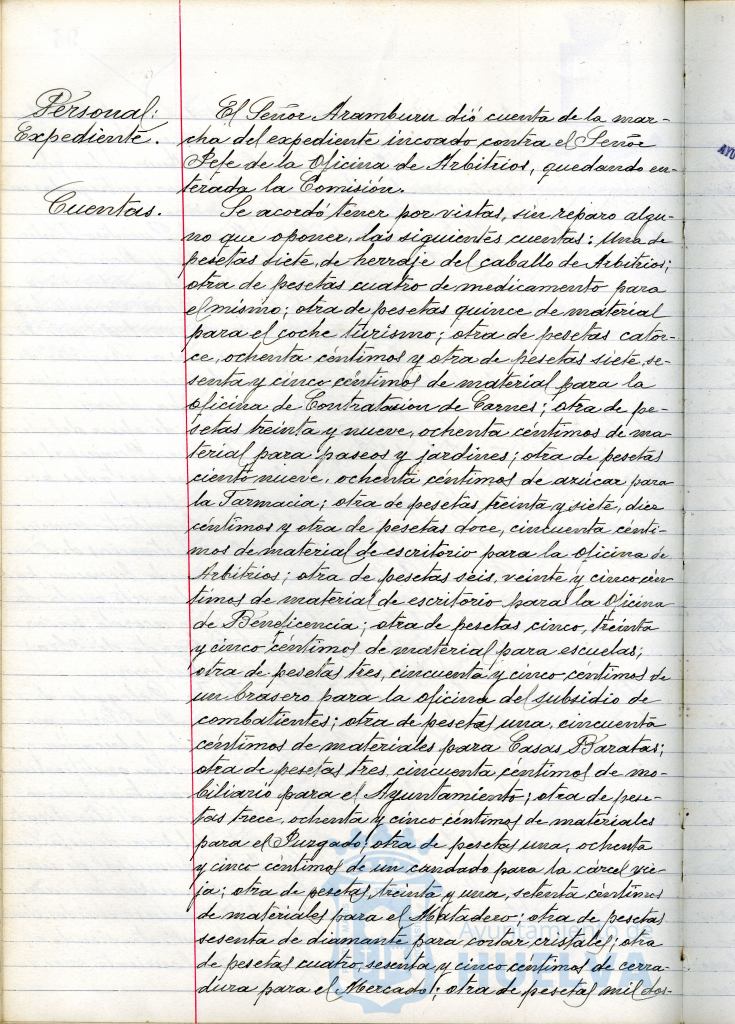 Personal:
Expediente.
El Señor Aramburu dió cuenta de la mar-
cha del expediente incoado contra el Señor
Jefe de la Oficina de Arbitrios, quedando en-
terada la Comisión.
Cuentas.
Se acordó tener por vistas, sin reparo algu-
no que oponer, las siguientes cuentas: Una de
pesetas siete, de herraje del caballo de Arbitrios;
otra de pesetas cuatro de medicamento para
el mismo; otra de pesetas quince de material
para el coche turismo; otra de pesetas cator-
ce, ochenta céntimos y otra de pesetas siete, se-
senta y cinco céntimos de material para la
oficina de Contratasión de Carnes; otra de pe-
setas treinta y nueve, ochenta céntimos de ma-
terial para paseos y jardines; otra de pesetas
ciento nueve, ochenta céntimos de azúcar para
la Farmacia; otra de pesetas treinta y siete, diez
céntimos y otra de pesetas doce, cincuenta cénti-
mos de material de escritorio para la oficina de
Arbitrios; otra de pesetas seis, veinte y cinco cén-
timos de material de escritorio para la Oficina
de Beneficencia; otra de pesetas cinco, treinta
y cinco céntimos de material para escuelas;
otra de pesetas tres, cincuenta y cinco céntimos de
un brasero para la oficina del subsidio de
combatientes; otra de pesetas una, cincuenta
céntimos de materiales para Casas Baratas;
otra de pesetas tres, cincuenta céntimos de mo-
biliario para el Ayuntamiento; otra de pese-
tas trece, ochenta y cinco céntimos de materiales
para el Juzgado; otra de pesetas una, ochenta
y cinco céntimos de un candado para la cárcel vie-
ja; otra de pesetas, treinta y una, setenta céntimos
de materiales para el Matadero; otra de pesetas
sesenta de diamante para cortar cristales; otra
de pesetas cuatro, sesenta y cinco céntimos de cerra-
dura para el Mercado; otra de pesetas mil dos-
Ayuntamiento de
HUELVA